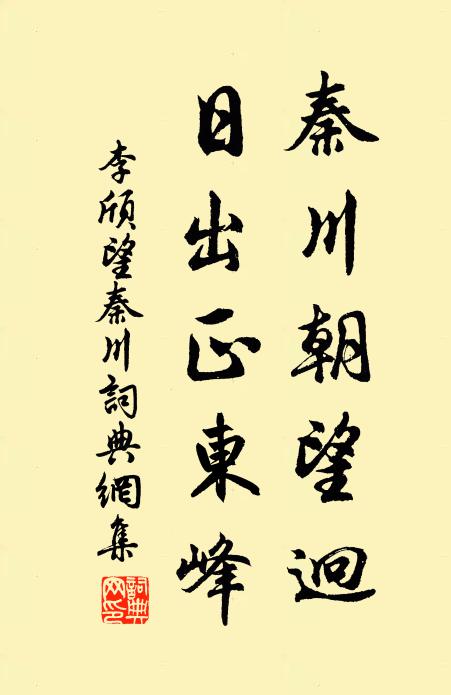 秦川朝望迥
日出正東峰
李頎望秦川詞典網集
詞典網印